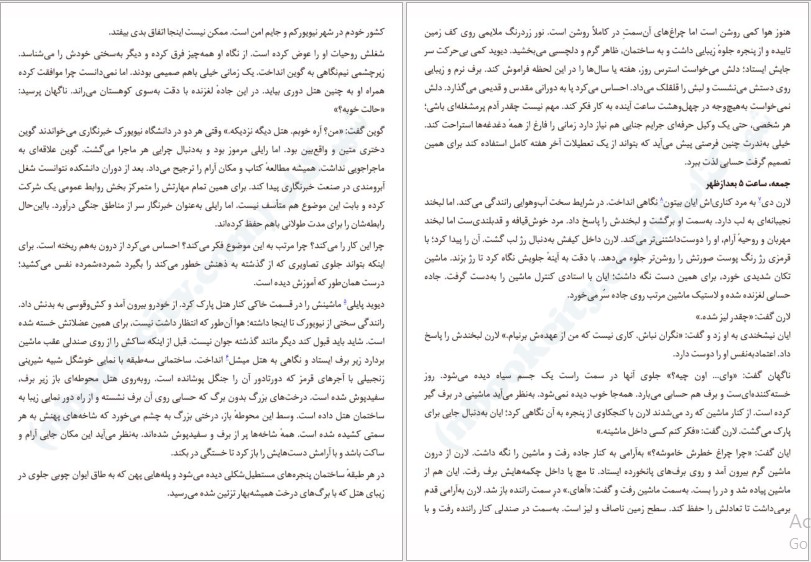 کشور خودم در شهر نیویورکم و جایم امن است. ممکن نیست اینجا اتفاق بدی بیفتد.
شغلش روحیات او را عوض کرده است. از نگاه او همه‌چیز فرق کرده و دیگر به‌سختی خودش را می‌شناسد.
زیرچشمی نیم‌نگاهی به گوین انداخت. یک زمانی خیلی باهم صمیمی بودند. اما نمی‌دانست چرا موافقت کرده
همراه او به چنین هتل دوری بیاید. در این جادهٔ لغزنده با دقت به‌سوی کوهستان می‌راند. ناگهان پرسید:
«حالت خوبه؟»
گوین گفت: «من؟ آره خوبم. هتل دیگه نزدیکه.» وقتی هر دو در دانشگاه نیویورک خبرنگاری می‌خواندند گوین
دختری متین و واقع‌بین بود. اما رایلی مرموز بود و به‌دنبال چرایی هر ماجرا می‌گشت. گوین علاقه‌ای به
ماجراجویی نداشت. همیشه مطالعهٔ کتاب و مکان آرام را ترجیح می‌داد. بعد از دوران دانشکده نتوانست شغل
آبرومندی در صنعت خبرنگاری پیدا کند. برای همین تمام مهارتش را متمرکز بخش روابط عمومی یک شرکت
کرده و بابت این موضوع هم متأسف نیست. اما رایلی به‌عنوان خبرنگار سر از مناطق جنگی درآورد. بااین‌حال
رابطه‌شان را برای مدت طولانی باهم حفظ کرده‌اند.
چرا این کار را می‌کند؟ چرا مرتب به این موضوع فکر می‌کند؟ احساس می‌کرد از درون به‌هم ریخته است. برای
اینکه بتواند جلوی تصاویری که از گذشته به ذهنش خطور می‌کند را بگیرد شمرده‌شمرده نفس می‌کشید؛
درست همان‌طور که آموزش دیده است.
دیوید پایلی⁵ ماشینش را در قسمت خاکی کنار هتل پارک کرد. از خودرو بیرون آمد و کش‌وقوسی به بدنش داد.
رانندگی سختی از نیویورک تا اینجا داشته؛ هوا آن‌طور که انتظار داشت نیست. برای همین عضلاتش خسته شده
است. شاید باید قبول کند دیگر مانند گذشته جوان نیست. قبل از اینکه ساکش را از روی صندلی عقب ماشین
بردارد زیر برف ایستاد و نگاهی به هتل میشل⁶ انداخت. ساختمانی سه‌طبقه با نمایی خوشگل شبیه شیرینی
زنجبیلی با آجرهای قرمز که دورتادور آن را جنگل پوشانده است. روبه‌روی هتل محوطه‌ای باز زیر برف،
سفیدپوش شده است. درخت‌های بزرگ بدون برگ که حسابی روی آن برف نشسته و از راه دور نمایی زیبا به
ساختمان هتل داده است. وسط این محوطهٔ باز، درختی بزرگ به چشم می‌خورد که شاخه‌های پهنش به هر
سمتی کشیده شده است. همهٔ شاخه‌ها پر از برف و سفیدپوش شده‌اند. به‌نظر می‌آید این مکان جایی آرام و
ساکت باشد و با آرامش دست‌هایش را باز کرد تا خستگی در بکند.
در هر طبقهٔ ساختمان پنجره‌های مستطیل‌شکلی دیده می‌شود و پله‌هایی پهن که به طاق ایوان چوبی جلوی در
زیبای هتل که با برگ‌های درخت همیشه‌بهار تزئین شده می‌رسید.
هنوز هوا کمی روشن است اما چراغ‌های آن‌سمتِ در کاملاً روشن است. نور زردرنگ ملایمی روی کف زمین
تابیده و از پنجره جلوهٔ زیبایی داشت و به ساختمان، ظاهر گرم و دلچسبی می‌بخشید. دیوید کمی بی‌حرکت سر
جایش ایستاد؛ دلش می‌خواست استرس روز، هفته یا سال‌ها را در این لحظه فراموش کند. برف نرم و زیبایی
روی دستش می‌نشست و لبش را قلقلک می‌داد. احساس می‌کرد پا به دورانی مقدس و قدیمی می‌گذارد. دلش
نمی‌خواست به‌هیچ‌وجه در چهل‌وهشت ساعت آینده به کار فکر کند. مهم نیست چقدر آدم پرمشغله‌ای باشی؛
هر شخصی، حتی یک وکیل حرفه‌ای جرایم جنایی هم نیاز دارد زمانی را فارغ از همهٔ دغدغه‌ها استراحت کند.
خیلی به‌ندرت چنین فرصتی پیش می‌آید که بتواند از یک تعطیلات آخر هفته کامل استفاده کند برای همین
تصمیم گرفت حسابی لذت ببرد.
جمعه، ساعت ۵ بعدازظهر
لارن دی⁷ به مرد کناری‌اش ایان بیتون⁸ نگاهی انداخت. در شرایط سخت آب‌وهوایی رانندگی می‌کند. اما لبخند
نجیبانه‌ای به لب دارد. به‌سمت او برگشت و لبخندش را پاسخ داد. مرد خوش‌قیافه و قدبلندی‌ست اما لبخند
مهربان و روحیهٔ آرام، او را دوست‌داشتنی‌تر می‌کند. لارن داخل کیفش به‌دنبال رژ لب گشت. آن را پیدا کرد؛ با
قرمزی رژ رنگ پوست صورتش را روشن‌تر جلوه می‌دهد. با دقت به آینهٔ جلویش نگاه کرد تا رژ بزند. ماشین
تکان شدیدی خورد، برای همین دست نگه داشت؛ ایان با استادی کنترل ماشین را به‌دست گرفت. جاده
حسابی لغزنده شده و لاستیک ماشین مرتب روی جاده سُر می‌خورد.
لارن گفت: «چقدر لیز شده.»
ایان نیشخندی به او زد و گفت: «نگران نباش. کاری نیست که من از عهده‌ش برنیام.» لارن لبخندش را پاسخ
داد. اعتمادبه‌نفس او را دوست دارد.
ناگهان گفت: «وای... اون چیه؟» جلوی آنها در سمت راست یک جسم سیاه دیده می‌شود. روز
خسته‌کننده‌ای‌ست و برف هم حسابی می‌بارد. همه‌جا خوب دیده نمی‌شود. به‌نظر می‌آید ماشینی در برف گیر
کرده است. از کنار ماشین که رد می‌شدند لارن با کنجکاوی از پنجره به آن نگاهی کرد؛ ایان به‌دنبال جایی برای
پارک می‌گشت. لارن گفت: «فکر کنم کسی داخل ماشینه.»
ایان گفت: «چرا چراغ خطرش خاموشه؟» به‌آرامی به کنار جاده رفت و ماشین را نگه داشت. لارن از درون
ماشین گرم بیرون آمد و روی برف‌های پانخورده ایستاد. تا مچ پا داخل چکمه‌هایش برف رفت. ایان هم از
ماشین پیاده شد و در را بست. به‌سمت ماشین رفت و گفت: «آهای.» درِ سمت راننده باز شد. لارن به‌آرامی قدم
برمی‌داشت تا تعادلش را حفظ کند. سطح زمین ناصاف و لیز است. به‌سمت در صندلی کنار راننده رفت و با